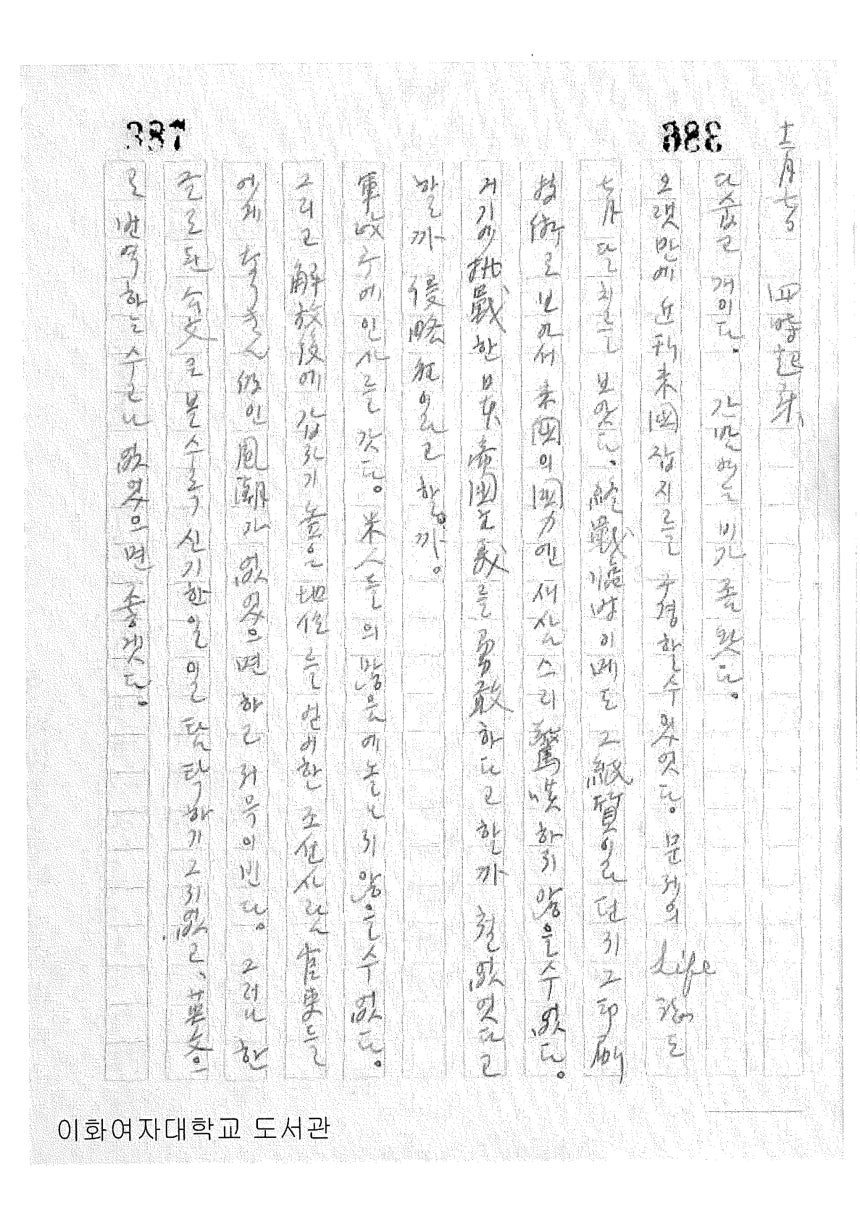 386
387
十二月七日 四時起床
다숩고 개이다. 간밤에는 비가 좀 왔다.
오랫만에 近刊 米國 잡지를 구경할수 있엇다. 문제의 Life 잡지도
七月달 치를 보앗다. 終戰臨時이메도 그 紙質일던지 그 印刷
技術로 보아서 米國의 國力엔 새삼스리 驚嘆하지 않을수 없다.
거기에 挑戰한 日本帝國主義를 勇敢하다고 할까 철없엇다고
할까 侵略狂이라고 할까.
軍政주에 인사를 갓다. 米人들의 많음에 놀나지 않을수 없다.
그리고 解放後에 갑작이 높은 地位를 얻어한 조선사람 官吏들
어째 風潮가 없엇으면 하고 저윽이 빈다. 그러나 한
글로된 公文로 볼수록 신기한일 일 탐탁하기 그지없고, 英文으
로 번역하는 수고나 없엇으면 좋겟다.
이화여자대학교 도서관